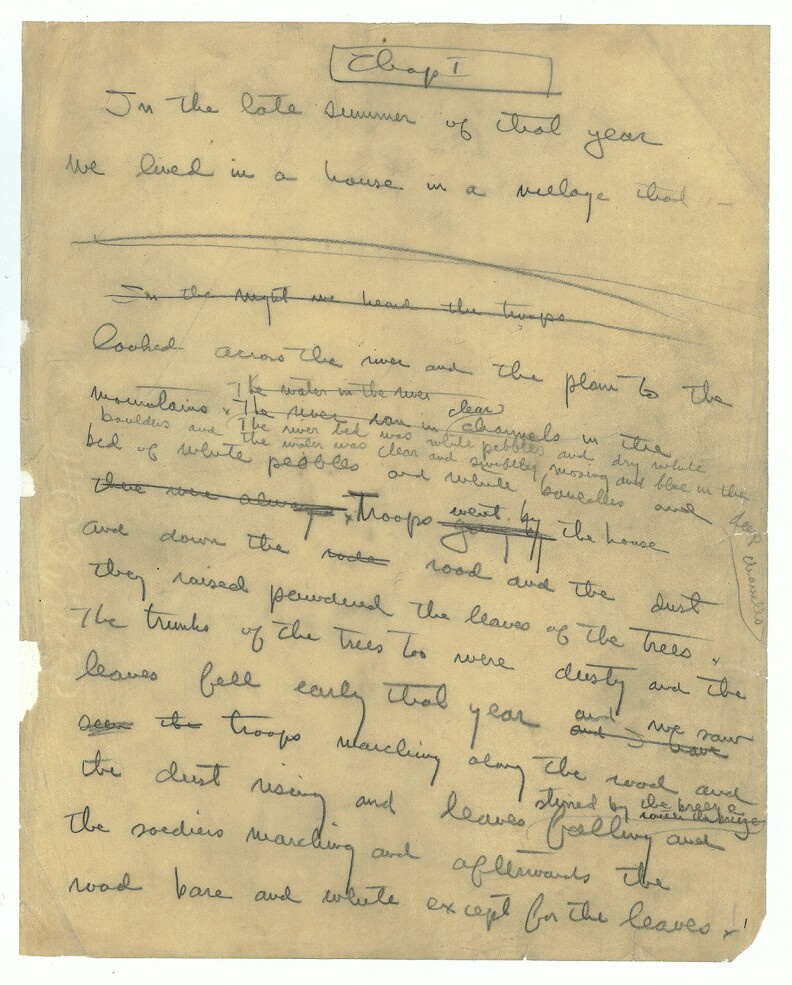 Chap I
In the late summer of that year
we lived in a house in a village that —
In the night we heard the troops
looked across the river and the plain to the
The water in the river
mountains x The river ran in clear channels in the
boulders and The river bed was white pebbles and dry white
the water was clear and swiftly moving and blue in the
deep channels
bed of white pebbles and white boulders and
there were always x Troops went by the house
and down the road and the dust
they raised powdered the leaves of the trees x
The trunks of the trees too were dusty and the
leaves fell early that year and we saw
and I have
seen the troops marching along the road and
the dust rising and leaves stirred by the breeze falling and
the soldiers marching and afterwards the
road bare and white except for the leaves x